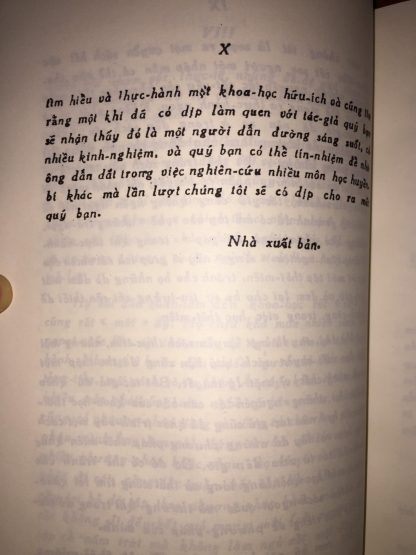 X
tìm hiểu và thực-hành một khoa-học hữu-ích và cũng
rằng một khi đã có dịp làm quen với tác-giả quý bạn
sẽ nhận thấy đó là một người dẫn đường sáng suốt, có
nhiều kinh-nghiệm, và quý bạn có thể tín-nhiệm để
ông dẫn dắt trong việc nghiên-cứu nhiều môn học huyền
bí khác mà lần lượt chúng tôi sẽ có dịp cho ra mắt
quý bạn.
Nhà xuất bản.